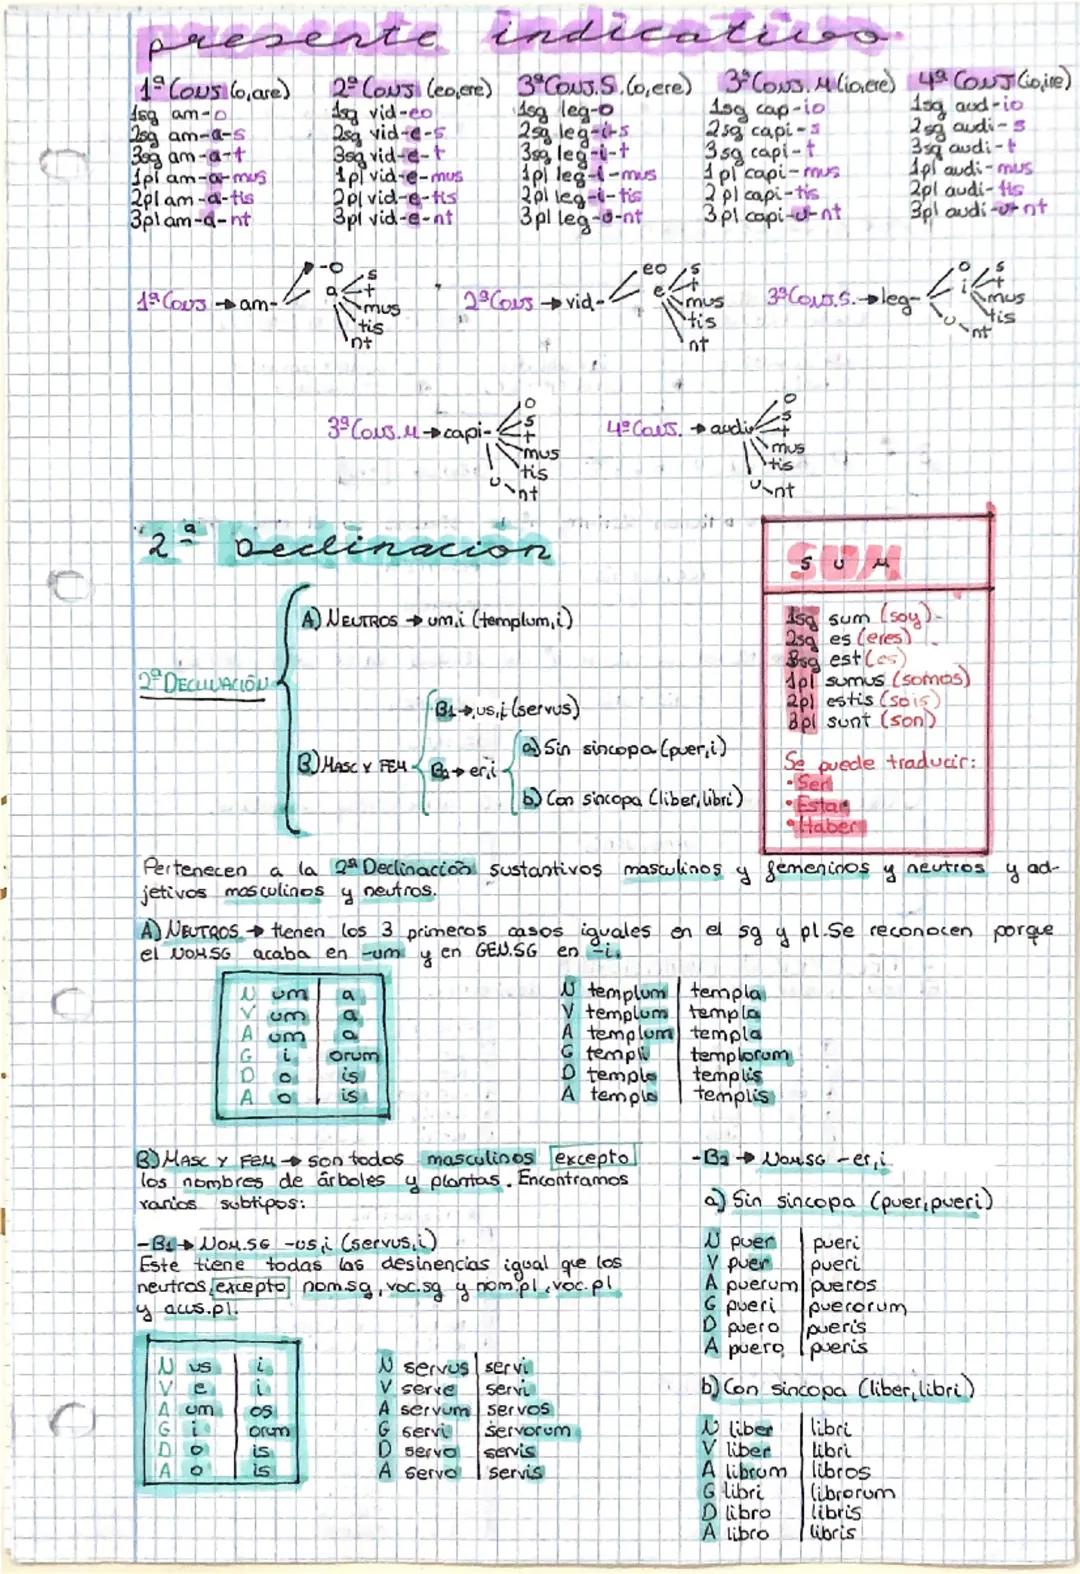 presente indicativo
1ª Conj (o,are)
1sg am-o
2sg am-a-s
3sg am-a-t
1pl am-a-mus
2pl am-a-tis
3pl am-a-nt
2ª Conj (eo,ere)
1sg vid-eo
2sg vid-e-s
3sg vid-e-t
1pl vid-e-mus
2pl vid-e-tis
3pl vid-e-nt
3ª Conj.S. (o,ere)
1sg leg-o
2sg leg-i-s
3sg leg-i-t
1pl leg-i-mus
2pl leg-i-tis
3pl leg-u-nt
3ª Conj. M (io,ere)
1sg cap-io
2sg capi-s
3sg capi-t
1pl capi-mus
2pl capi-tis
3pl capi-u-nt
4ª Conj (io,ire)
1sg aud-io
2sg audi-s
3sg audi-t
1pl audi-mus
2pl audi-tis
3pl audi-u-nt
1ª Conj → am-
-o
a
s
t
mus
tis
nt
2ª Conj → vid-
eo
e
s
t
mus
tis
nt
3ª Conj.S. → leg-
o
i
s
t
mus
tis
u nt
3ª Conj.M → capi-
o
s
t
mus
tis
u nt
4ª Conj. → audi
o
s
t
mus
tis
u nt
2ª Declinacion
SUM
1sg sum (soy)
2sg es (eres)
3sg est (es)
1pl sumus (somos)
2pl estis (sois)
3pl sunt (son)
Se puede traducir:
• Ser
• Estar
• Haber
2ª DECLINACIÓN
A) NEUTROS → um,i (templum,i)
B) MASC Y FEM
B1 → us,i (servus)
B2 → er,i
a) Sin sincopa (puer,i)
b) Con sincopa (liber,libri)
Pertenecen a la 2ª Declinación sustantivos masculinos y femeninos y neutros y ad-
jetivos masculinos y neutros.
A) NEUTROS → tienen los 3 primeros casos iguales en el sg y pl. Se reconocen porque
el NOM SG acaba en -um y en GEN.SG en -i.
N um | a
V um | a
A um | a
G i | orum
D o | is
A o | is
N templum | templa
V templum | templa
A templum | templa
G templi | templorum
D templo | templis
A templo | templis
B) MASC Y FEM → son todos masculinos excepto
los nombres de árboles y plantas. Encontramos
varios subtipos:
-B1 → Nom.SG -us,i (servus,i)
Este tiene todas las desinencias igual que los
neutros, excepto nom.sg, voc.sg y nom.pl, voc.pl
y acus.pl.
N us | i
V e | i
A um | os
G i | orum
D o | is
A o | is
N servus | servi
V serve | servi
A servum | servos
G servi | servorum
D servo | servis
A servo | servis
-B2 → Nom.SG -er,i
a) Sin sincopa (puer,pueri)
N puer | pueri
V puer | pueri
A puerum | pueros
G pueri | puerorum
D puero | pueris
A puero | pueris
b) Con sincopa (liber,libri)
N liber | libri
V liber | libri
A librum | libros
G libri | librorum
D libro | libris
A libro | libris